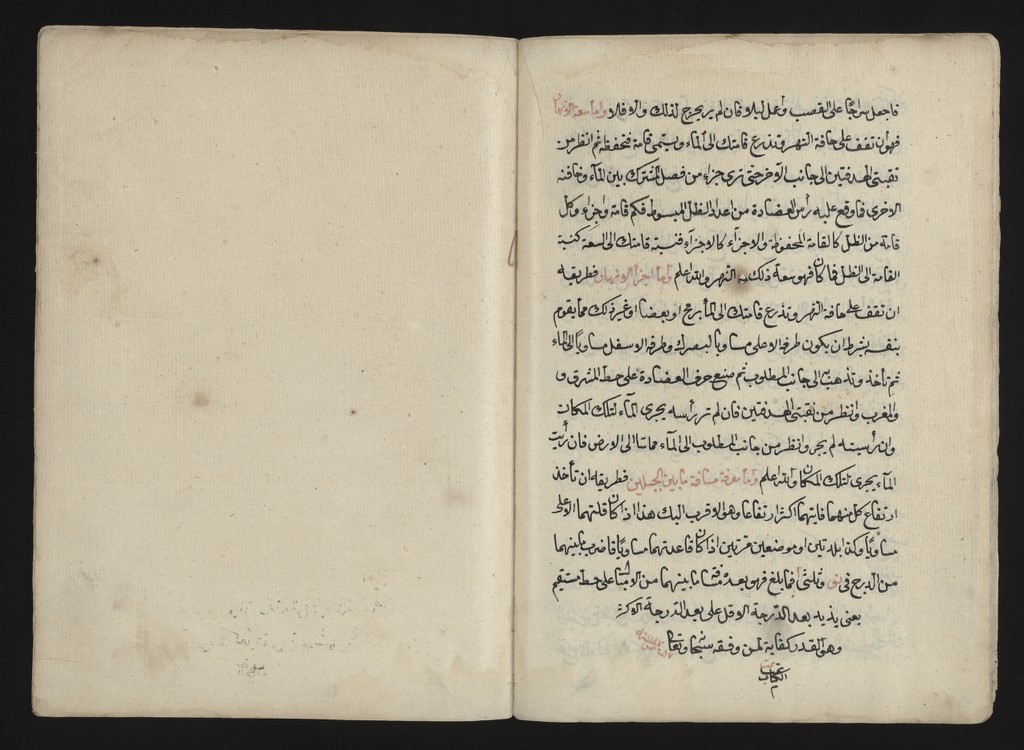 فاجعل سراجا على القصب واعمل ليلا فان لم ير يجرى لذلك والا فلا واما سعة الانهار
فهو ان تقف على حافة النهر وتذرع قامتك الى الماء ويسمى قامة محفوظة ثم انظر من
ثقبتى الهدفتين الى جانب الآخر حتى ترى جزاء من فصل المشترك بين المآء وحافته
الاخرى فما وقع عليه رأس العضادة من اعداد الظل المبسوط فكم قامة واجزاء وكل
قامة من الظل كالقامة المحفوظة والاجزآء كالاجزآء فنسبة قامتك الى السعة كنسبة
القامة الى الظل فما كان فهو سعة ذلك النهر والله اعلم واما اجراء الانهار فطريقه
ان تقف على حافة النهر وتذرع قامتك الى المآ برمح او بعصا او غير ذلك مما يقوم
بنفسه بشرط ان يكون طرفه الاعلى مساويا لبصرك وطرفه الاسفل مساويا الى الماء
ثم تأخذ وتذهب به الى جانب المطلوب ثم صنع حرف العضادة على خط المشرق و
والمغرب وانظر من ثقبتى الهدفتين فان لم تر رأسه يجرى المآء لتلك المكان
وان رأسيته لم يجر وانظر من جانب المطلوب الى المآء الى الارض فان رأيت
المآء يجرى لتلك المكان والله اعلم واما معرفة مسافة ما بين الجبلين فطريقه ان تأخذ
ارتفاع كل منهما فايتهما اكثر ارتفاعا وهو الاقرب اليك هذا اذا كان قلتهما الاعلى
مساويا وكذا بلدتين او موضعين قريتين اذا كان قاعدتهما مساويا فاضرب ما بينهما
من الدرج فى نو وثلثى فما بلغ فهو بعد ما بينهما من الاميال على خط مستقيم
يعنى يزيد بعد الدرجة الاقل على بعد الدرجة الاكثر
وهو القدر كفاية لمن وفقه سبحانه وتعالى
تمت
الكتاب
م